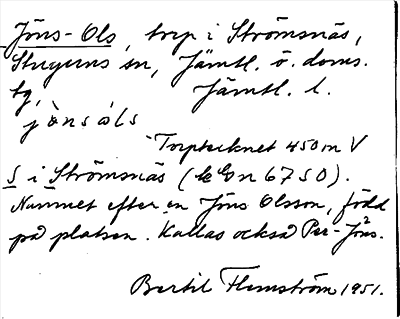 Jöns-Ols, torp i Strömsnäs,
Stuguns sn, Jämtl. ö. doms.
tg, Jämtl. l.
jònsáls
Torptecknet 450 m V
S i Strömsnäs (6750).
Namnet efter en Jöns Olsson, född
på platsen. Kallas också Per-Jöns.
Bertil Flemström 1951.